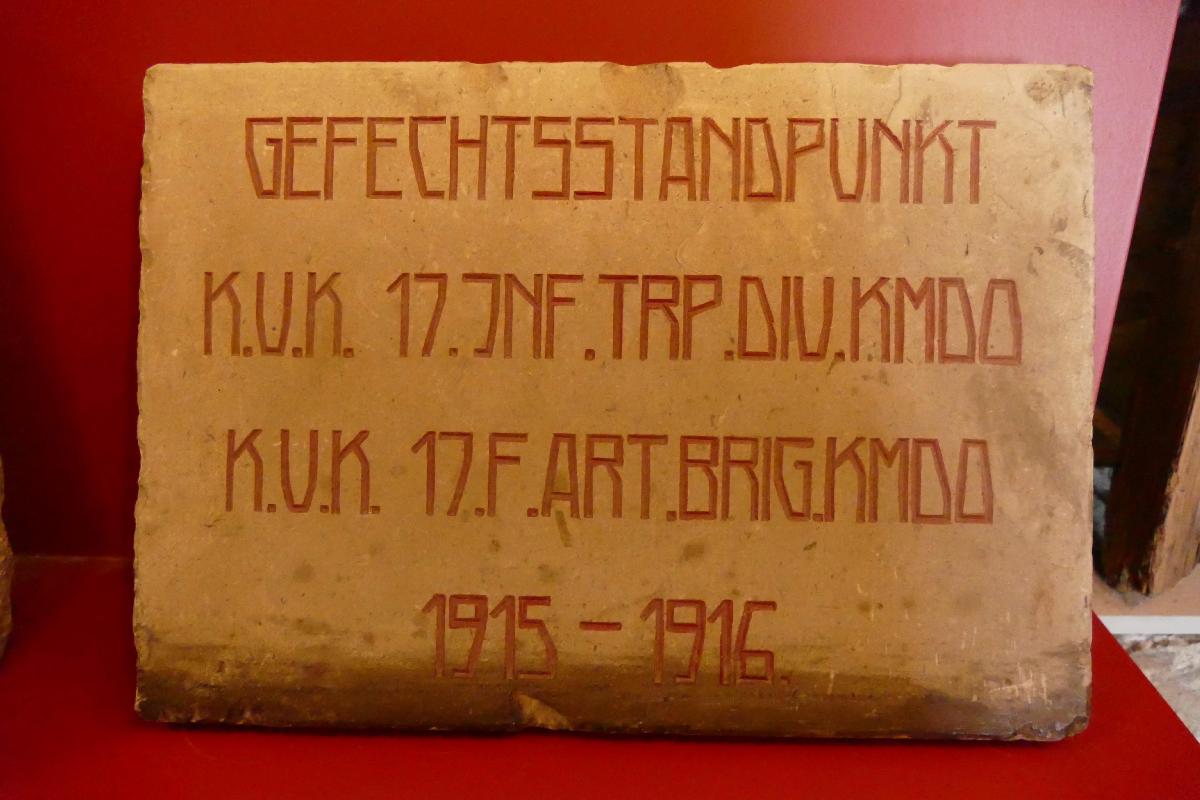 GEFECHTSSTANDPUNKT
K.U.K. 17. JNF. TRP. DIV. KMDO
K.U.K. 17. F. ART. BRIG. KMDO
1915 – 1916.